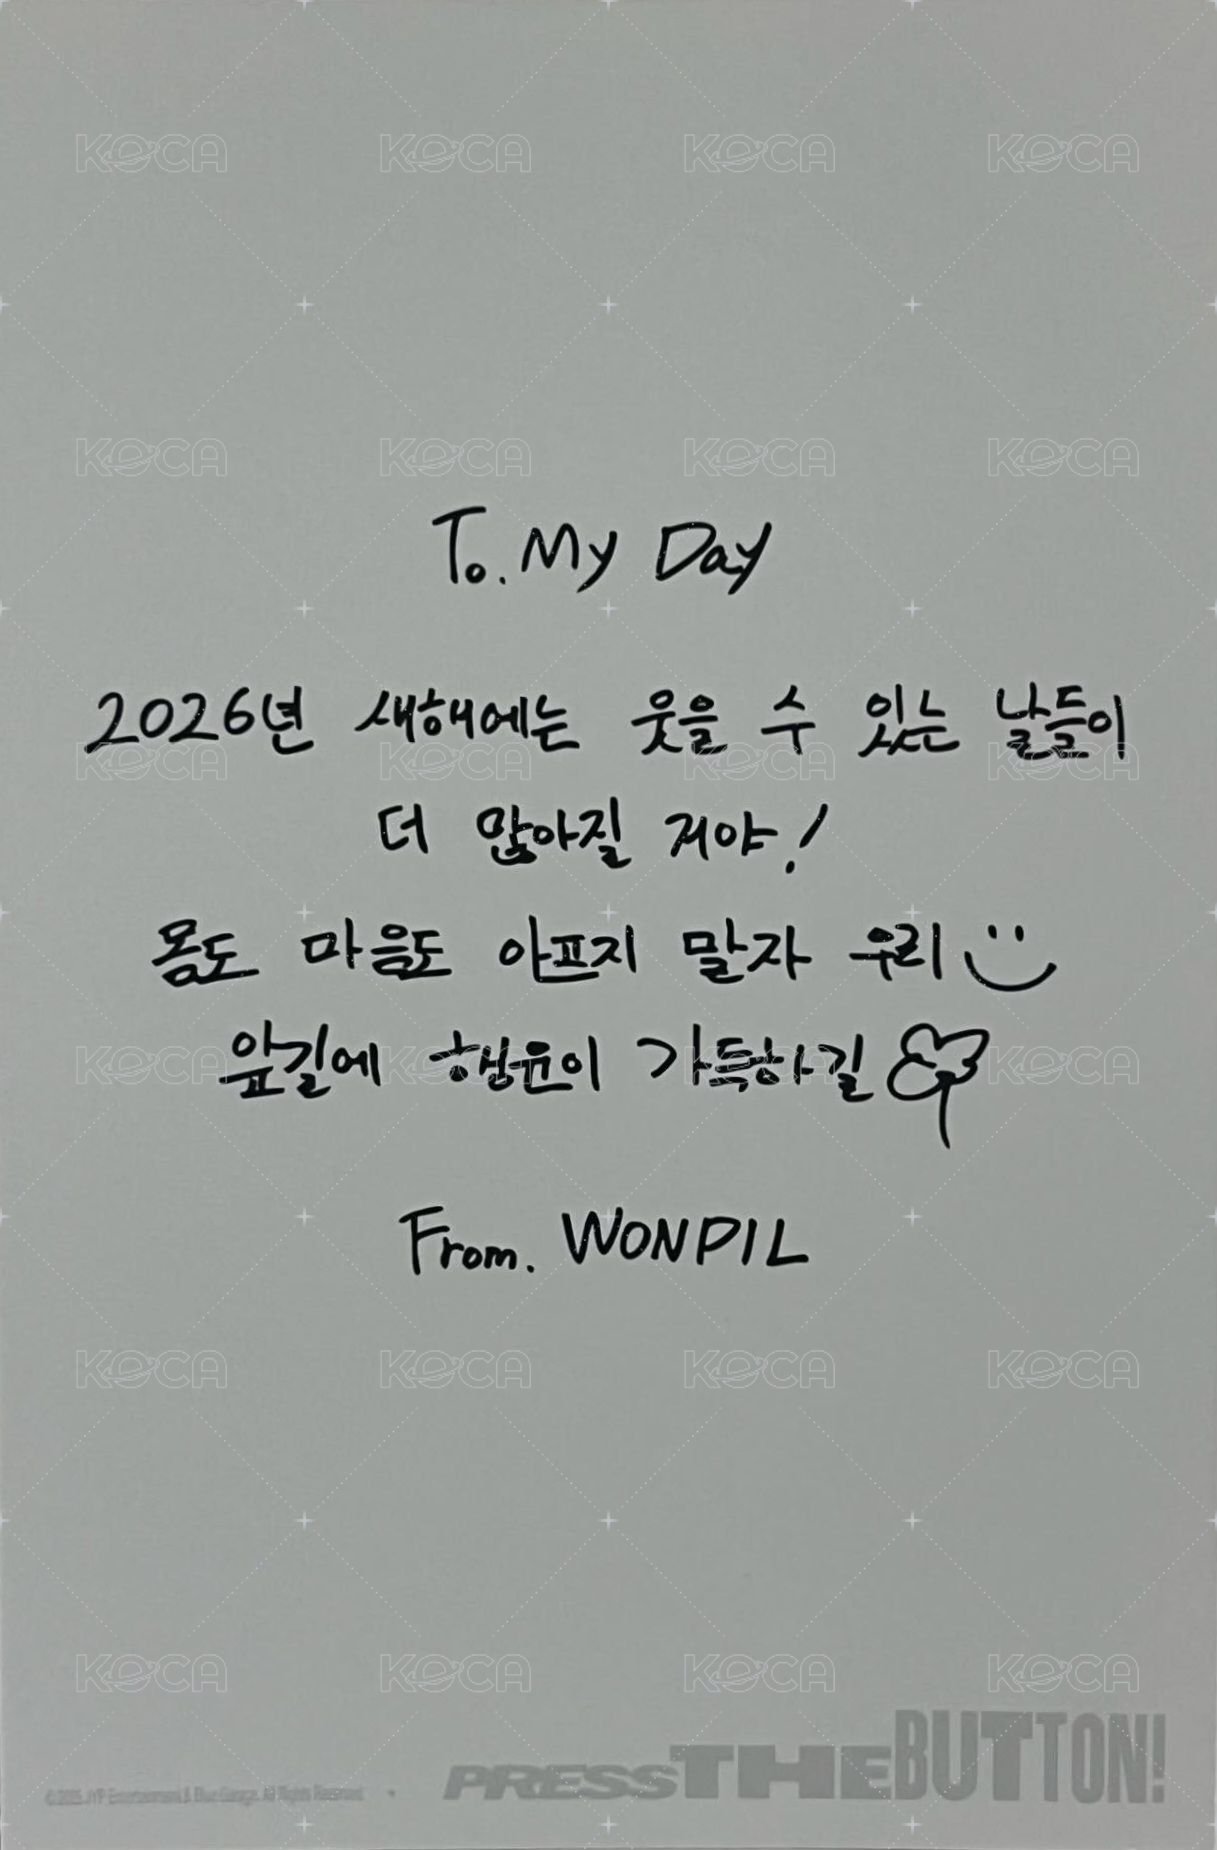 KOCA KOCA KOCA KOCA
KOCA KOCA KOCA KOCA
To. My Day
2026년 새해에는 웃을 수 있는 날들이
KOCA KOCA KOCA KOCA
더 많아질 거야!
몸도 마음도 아프지 말자 우리
앞길에 행운이 가득하길
KOCA KOCA KOCA KOCA
From. WONPIL
KOCA KOCA KOCA KOCA
KOCA KOCA KOCA KOCA
PRESS THE BUTTON!
©2025 JYP Entertainment & Blue Garage. All Rights Reserved.